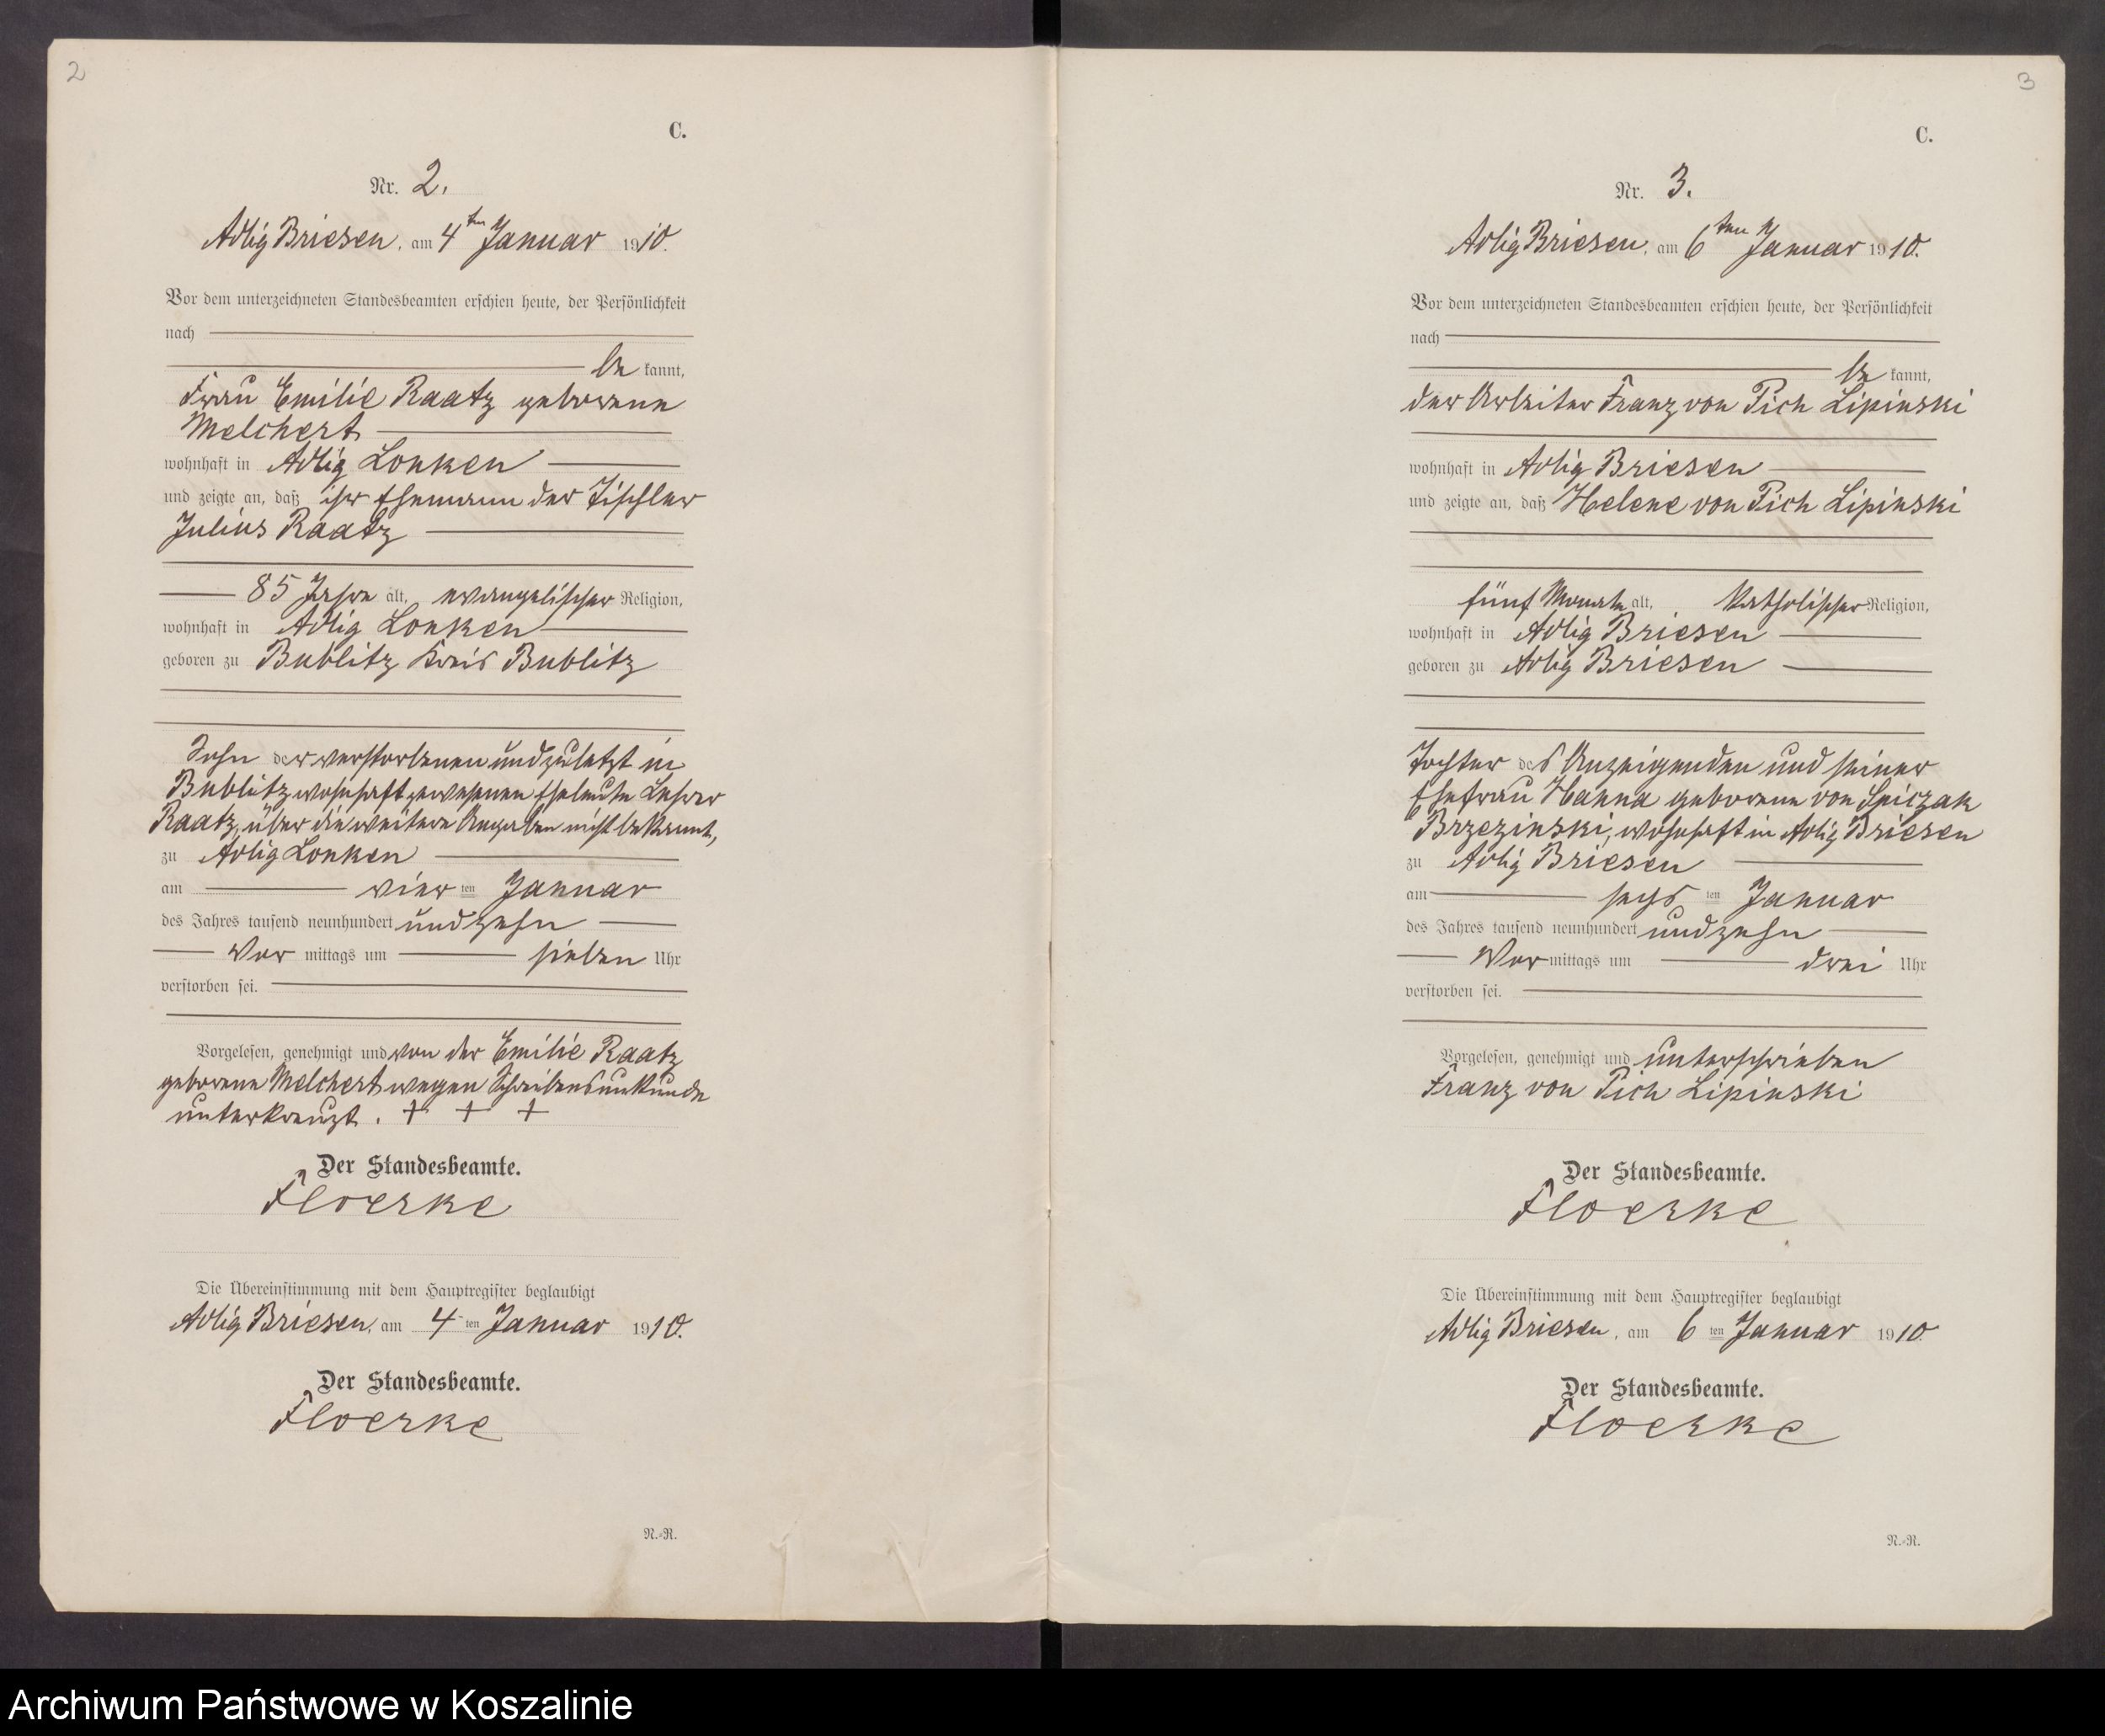 2
C.
Nr. 2.
Adlig Briesen, am 4ten Januar 1910.
Vor dem unterzeichneten Standesbeamten erschien heute, der Persönlichkeit
nach
be kannt,
Frau Emilie Raatz geborene
Melchert
wohnhaft in Adlig Lonken
und zeigte an, daß ihr Ehemann der Tischler
Julius Raatz
85 Jahre alt, evangelischer Religion,
wohnhaft in Adlig Lonken
geboren zu Bublitz Kreis Bublitz
Sohn der verstorbenen und zuletzt in
Bublitz wohnhaft gewesenen Eheleute Lehrer
Raatz, über die weitere Angaben nicht bekannt,
zu Adlig Lonken
am vier ten Januar
des Jahres tausend neunhundert und zehn
Vor mittags um sieben Uhr
verstorben sei.
Vorgelesen, genehmigt und von der Emilie Raatz
geborene Melchert wegen Schreibensunkunde
unterkreuzt. + + +
Der Standesbeamte.
Floerke
Die Übereinstimmung mit dem Hauptregister beglaubigt
Adlig Briesen, am 4 ten Januar 1910.
Der Standesbeamte.
Floerke
N.-R.
3
C.
Nr. 3.
Adlig Briesen, am 6ten Januar 1910.
Vor dem unterzeichneten Standesbeamten erschien heute, der Persönlichkeit
nach
be kannt,
der Arbeiter Franz von Pich Lipinski
wohnhaft in Adlig Briesen
und zeigte an, daß Helene von Pich Lipinski
fünf Monate alt, katholischer Religion,
wohnhaft in Adlig Briesen
geboren zu Adlig Briesen
Tochter des Anzeigenden und seiner
Ehefrau Hanna geborene von Spiczak
Brzezinski, wohnhaft in Adlig Briesen
zu Adlig Briesen
am sechs ten Januar
des Jahres tausend neunhundert und zehn
Vor mittags um drei Uhr
verstorben sei.
Vorgelesen, genehmigt und unterschrieben
Franz von Pich Lipinski
Der Standesbeamte.
Floerke
Die Übereinstimmung mit dem Hauptregister beglaubigt
Adlig Briesen, am 6 ten Januar 1910.
Der Standesbeamte.
Floerke
N.-R.
Archiwum Państwowe w Koszalinie